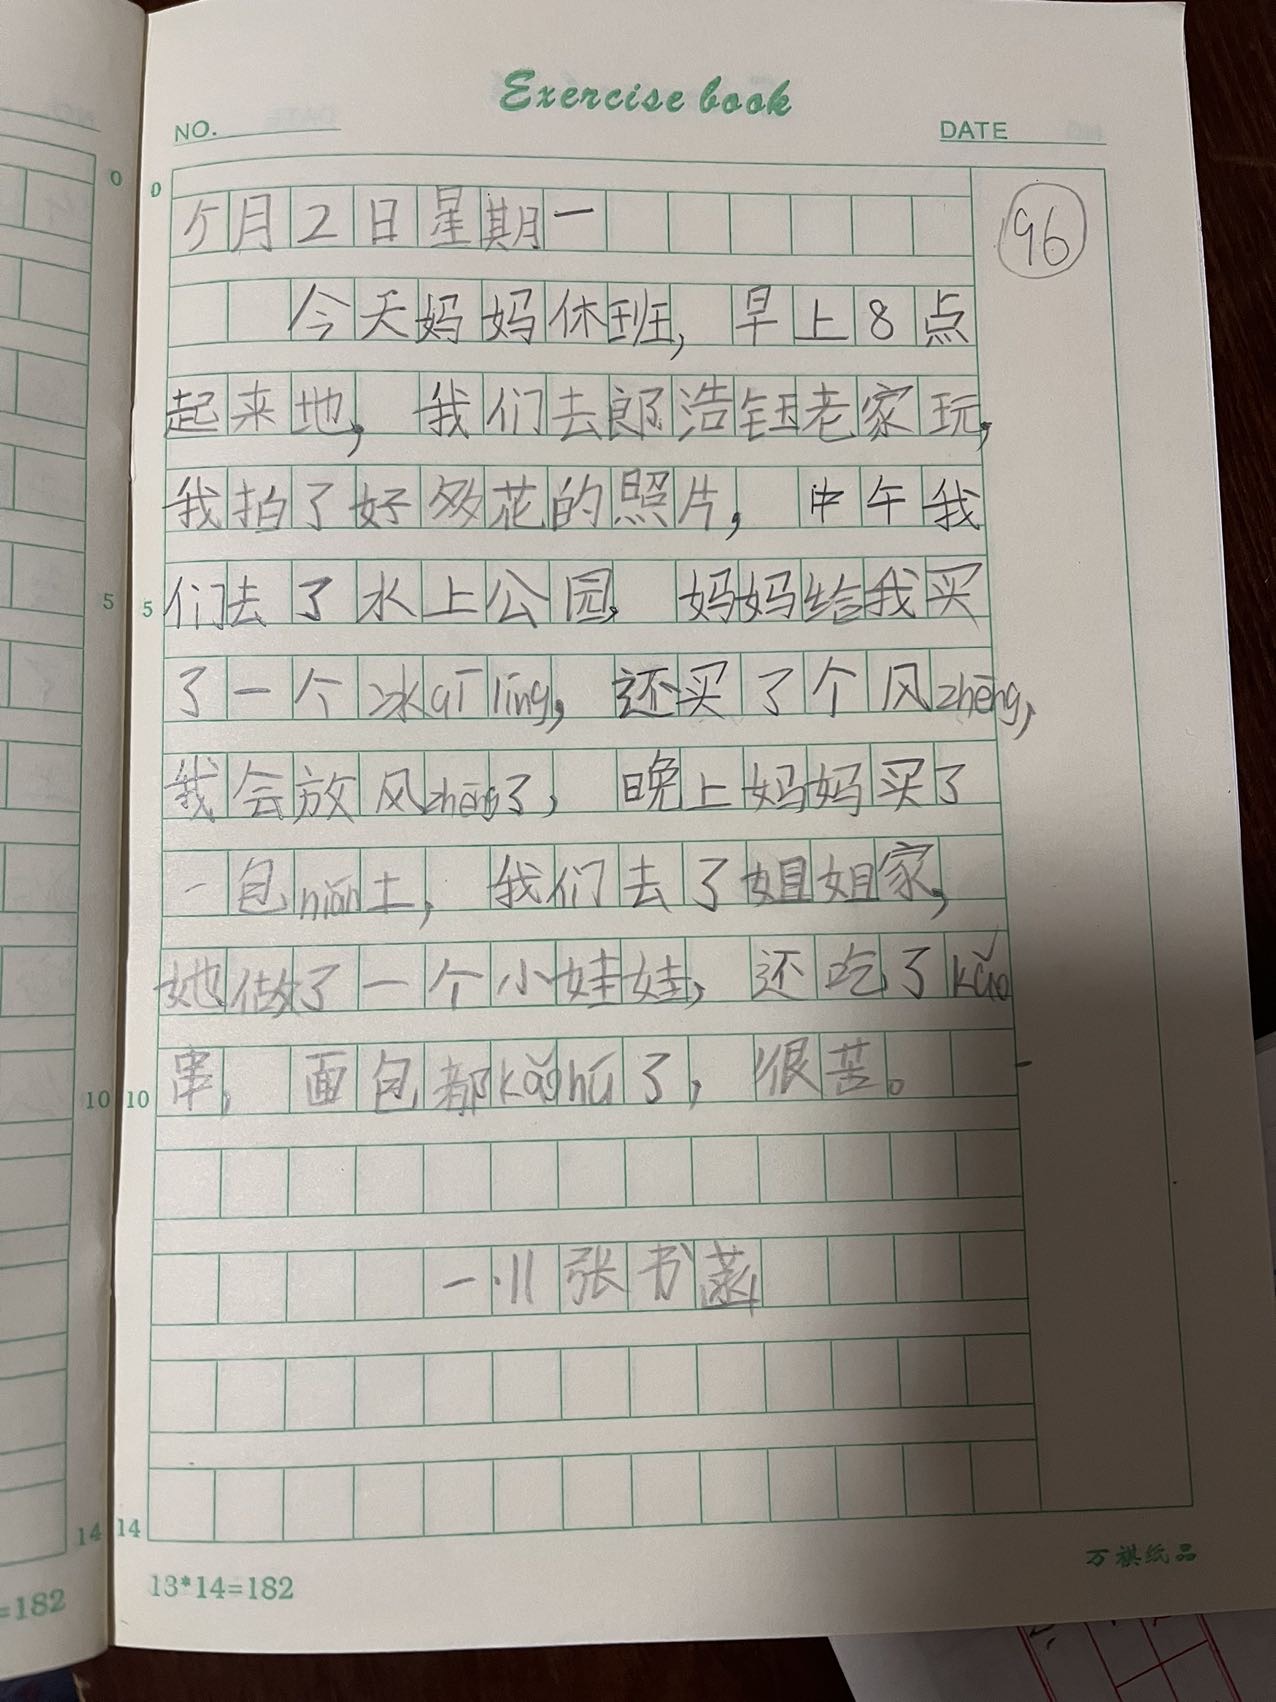 Exercise book
NO.
DATE
0
0
96
5月2日星期一
今天妈妈休班,早上8点
起来地,我们去郎浩钰老家玩,
我拍了好多花的照片,中午我
5
5
们去了水上公园,妈妈给我买
了一个冰qī līng,还买了个风zhēng,
我会放风zhēng了,晚上妈妈买了
一包nián土,我们去了姐姐家,
她做了一个小娃娃,还吃了kǎo
10
10
串,面包都kǎohú了,很苦。
一·11张书
14
14
万祺纸品
13*14=182
=182